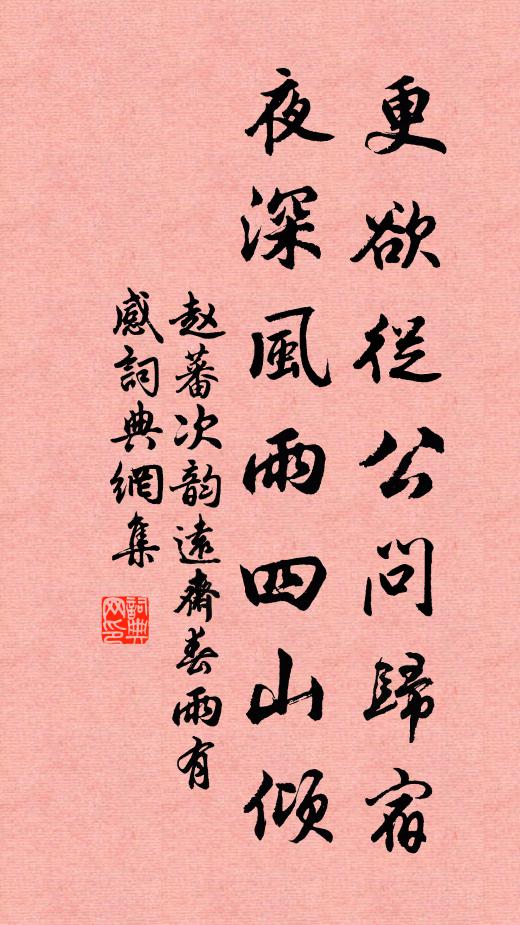 更欲從公問歸宿
夜深風雨四山傾
赵蕃次韵遠齋春雨有
感詞典網集
詞典
网印